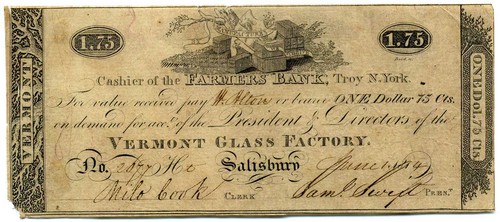 1.75
1.75
VERMONT
Cashier of the FARMERS BANK, Troy N.York.
For value received pay W. Alton or bearer ONE Dollar 75 Cts.
on demand for acc.t of the President & Directors of the
VERMONT GLASS FACTORY.
No. Salisbury June 1814
Milo Cook CLERK Sam.l Swift PRES.T
ONE Dol.75 Cts